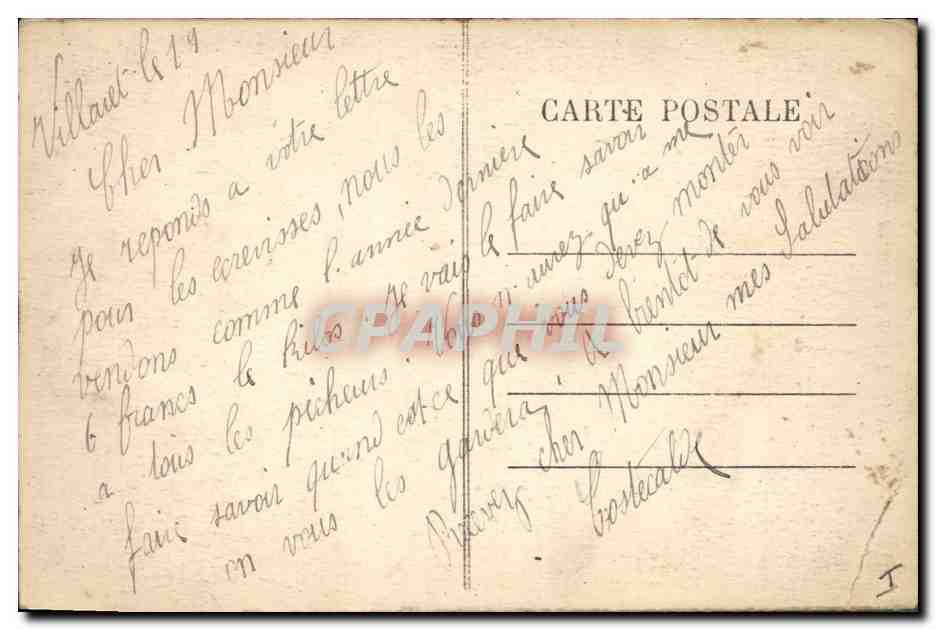 Villaret le 19
Cher Monsieur
Je reponds a votre lettre
pour les ecrevisses, nous les
vendons comme l'année dernière
6 francs le kilos. Je vais le faire savoir
a tous les pêcheurs. Vous n'aurez qu'a me
faire savoir quand est-ce que vous devez monter
on vous les gardera, a bientôt de vous voir
Recevez cher Monsieur mes Salutations
Costecalde
CARTE POSTALE
CPAPHIL
I